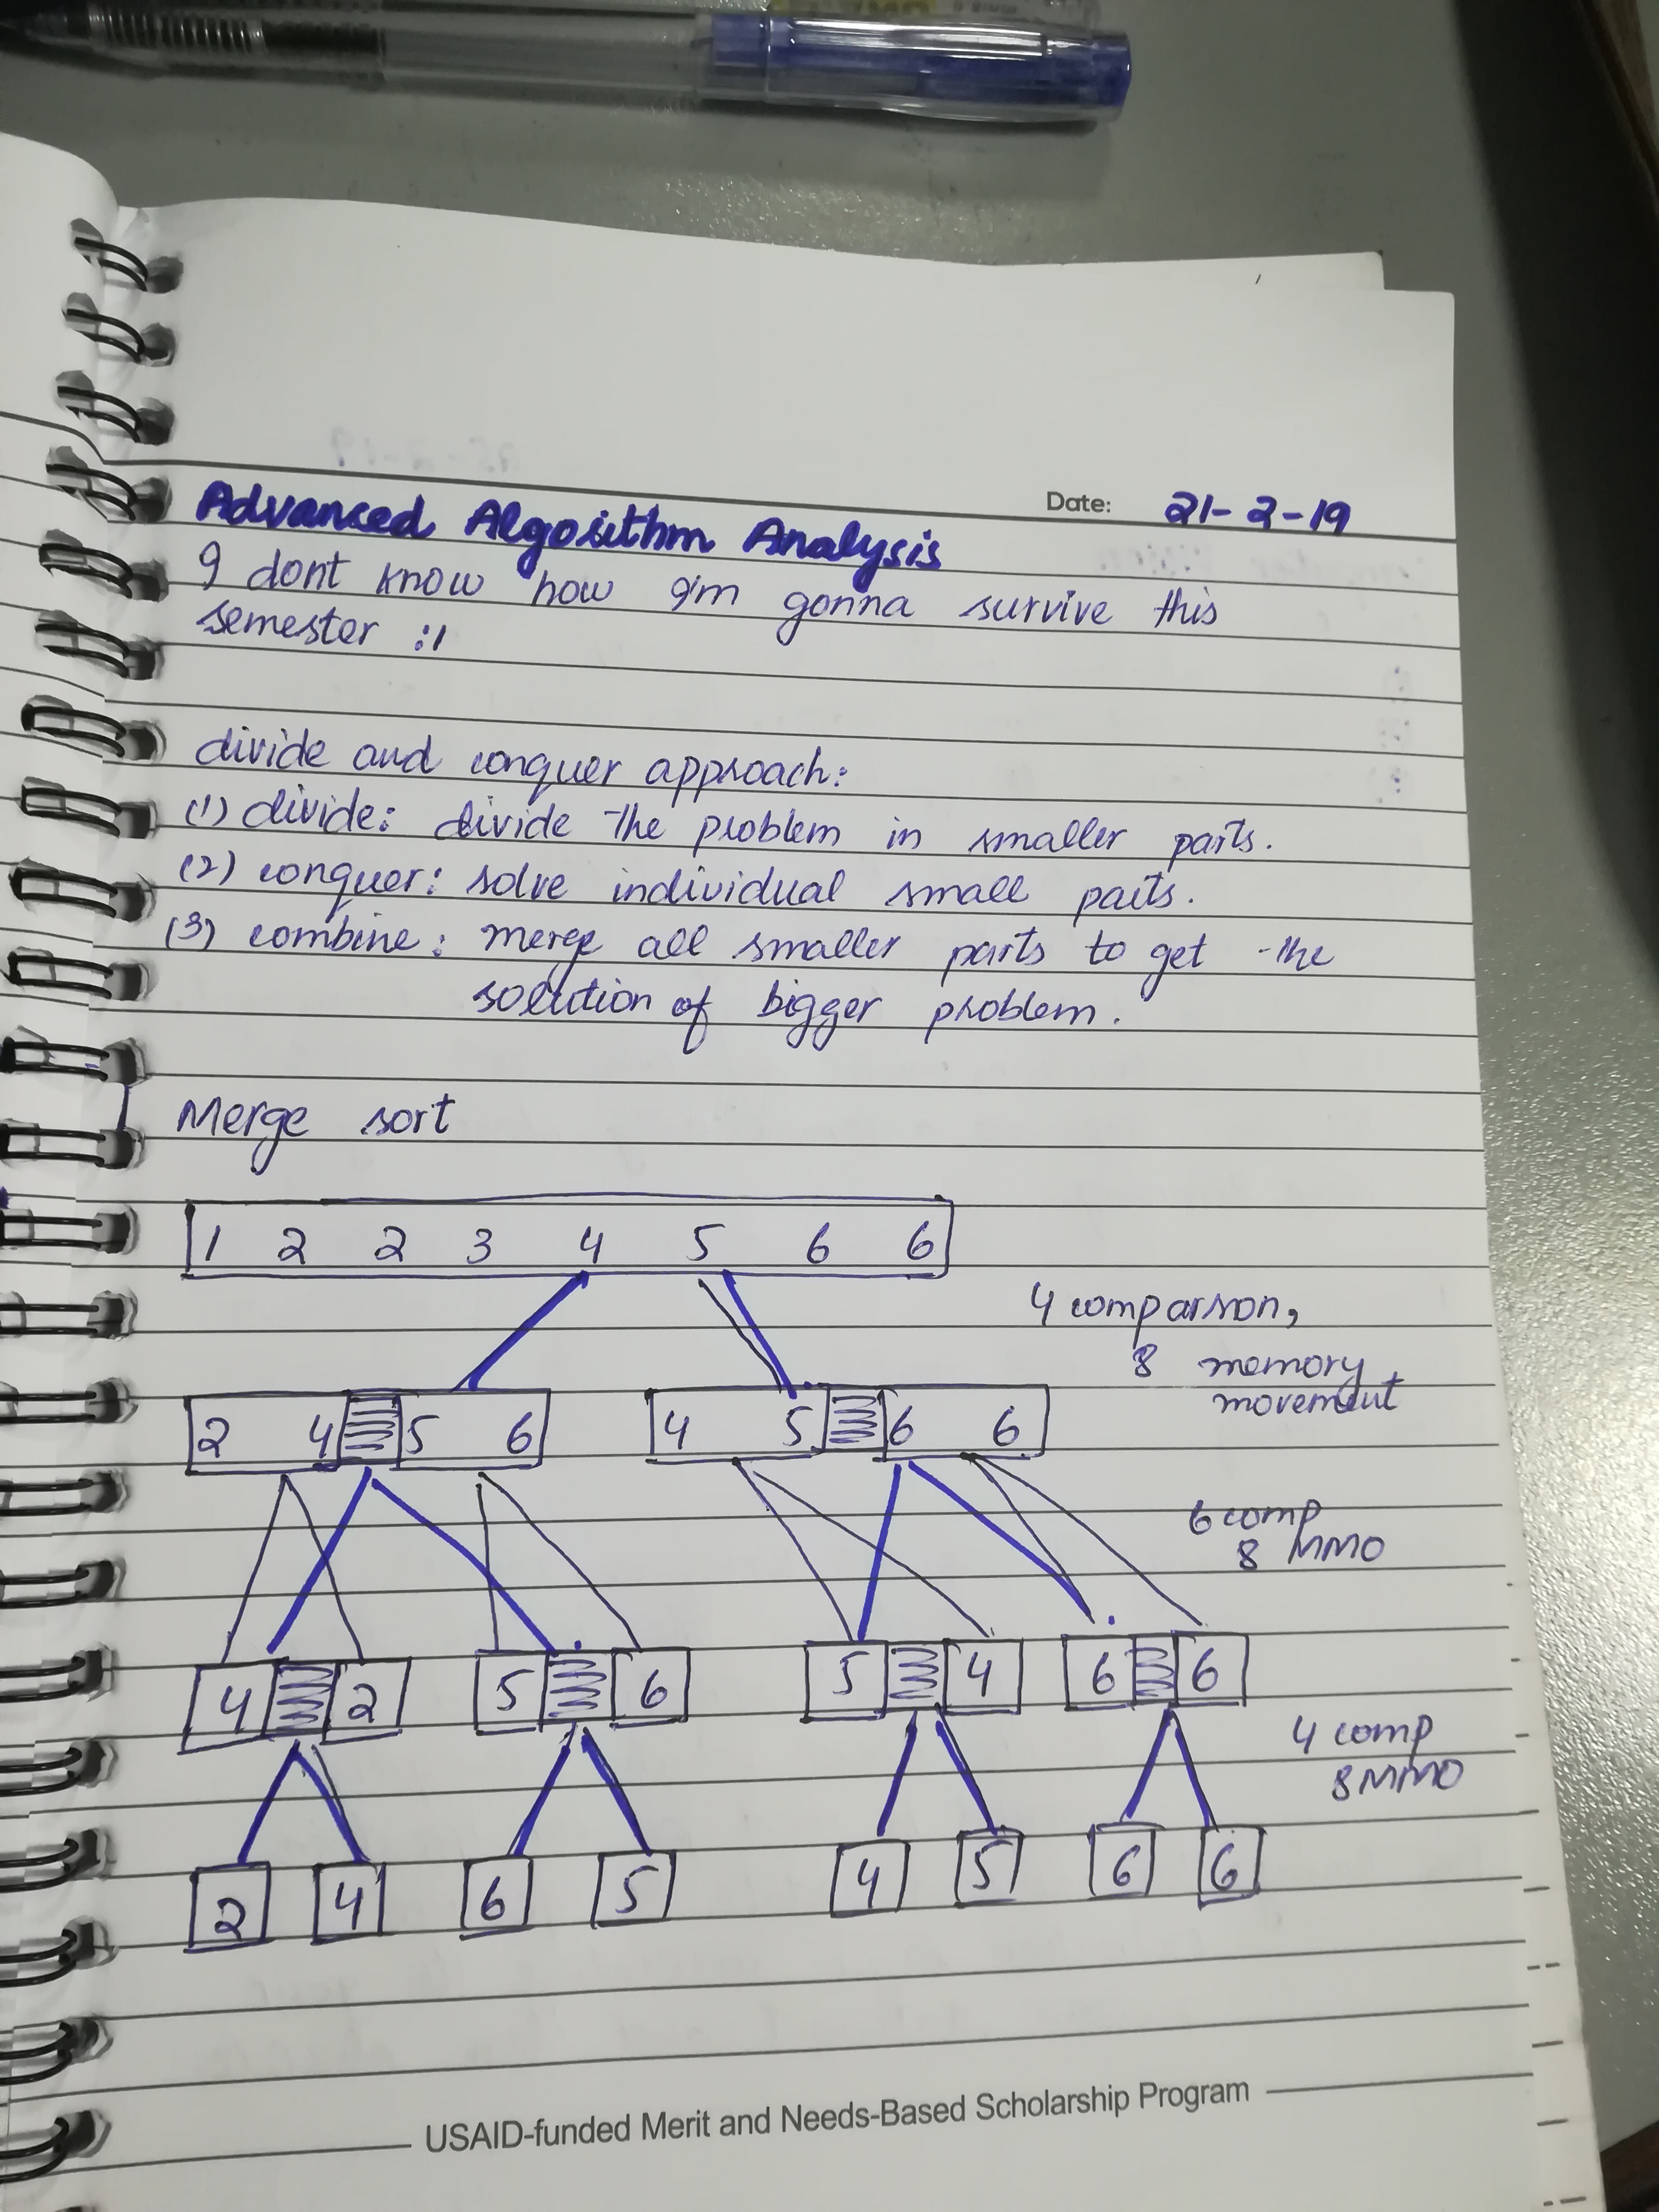 Date: 21-2-19
Advanced Algorithm Analysis
I dont know how I'm gonna survive this
semester :1
divide and conquer approach:
(1) divide: divide the problem in smaller parts.
(2) conquer: solve individual small parts.
(3) combine: merge all smaller parts to get the
solution of bigger problem.
Merge sort
1 2 2 3 4 5 6 6
4 comparson,
8 memory
movement
2 4 5 6 4 5 6 6
6 comp
8 MMO
4 2 5 6 5 4 6 6
4 comp
8 MMO
2 4 6 5 4 5 6 6
USAID-funded Merit and Needs-Based Scholarship Program